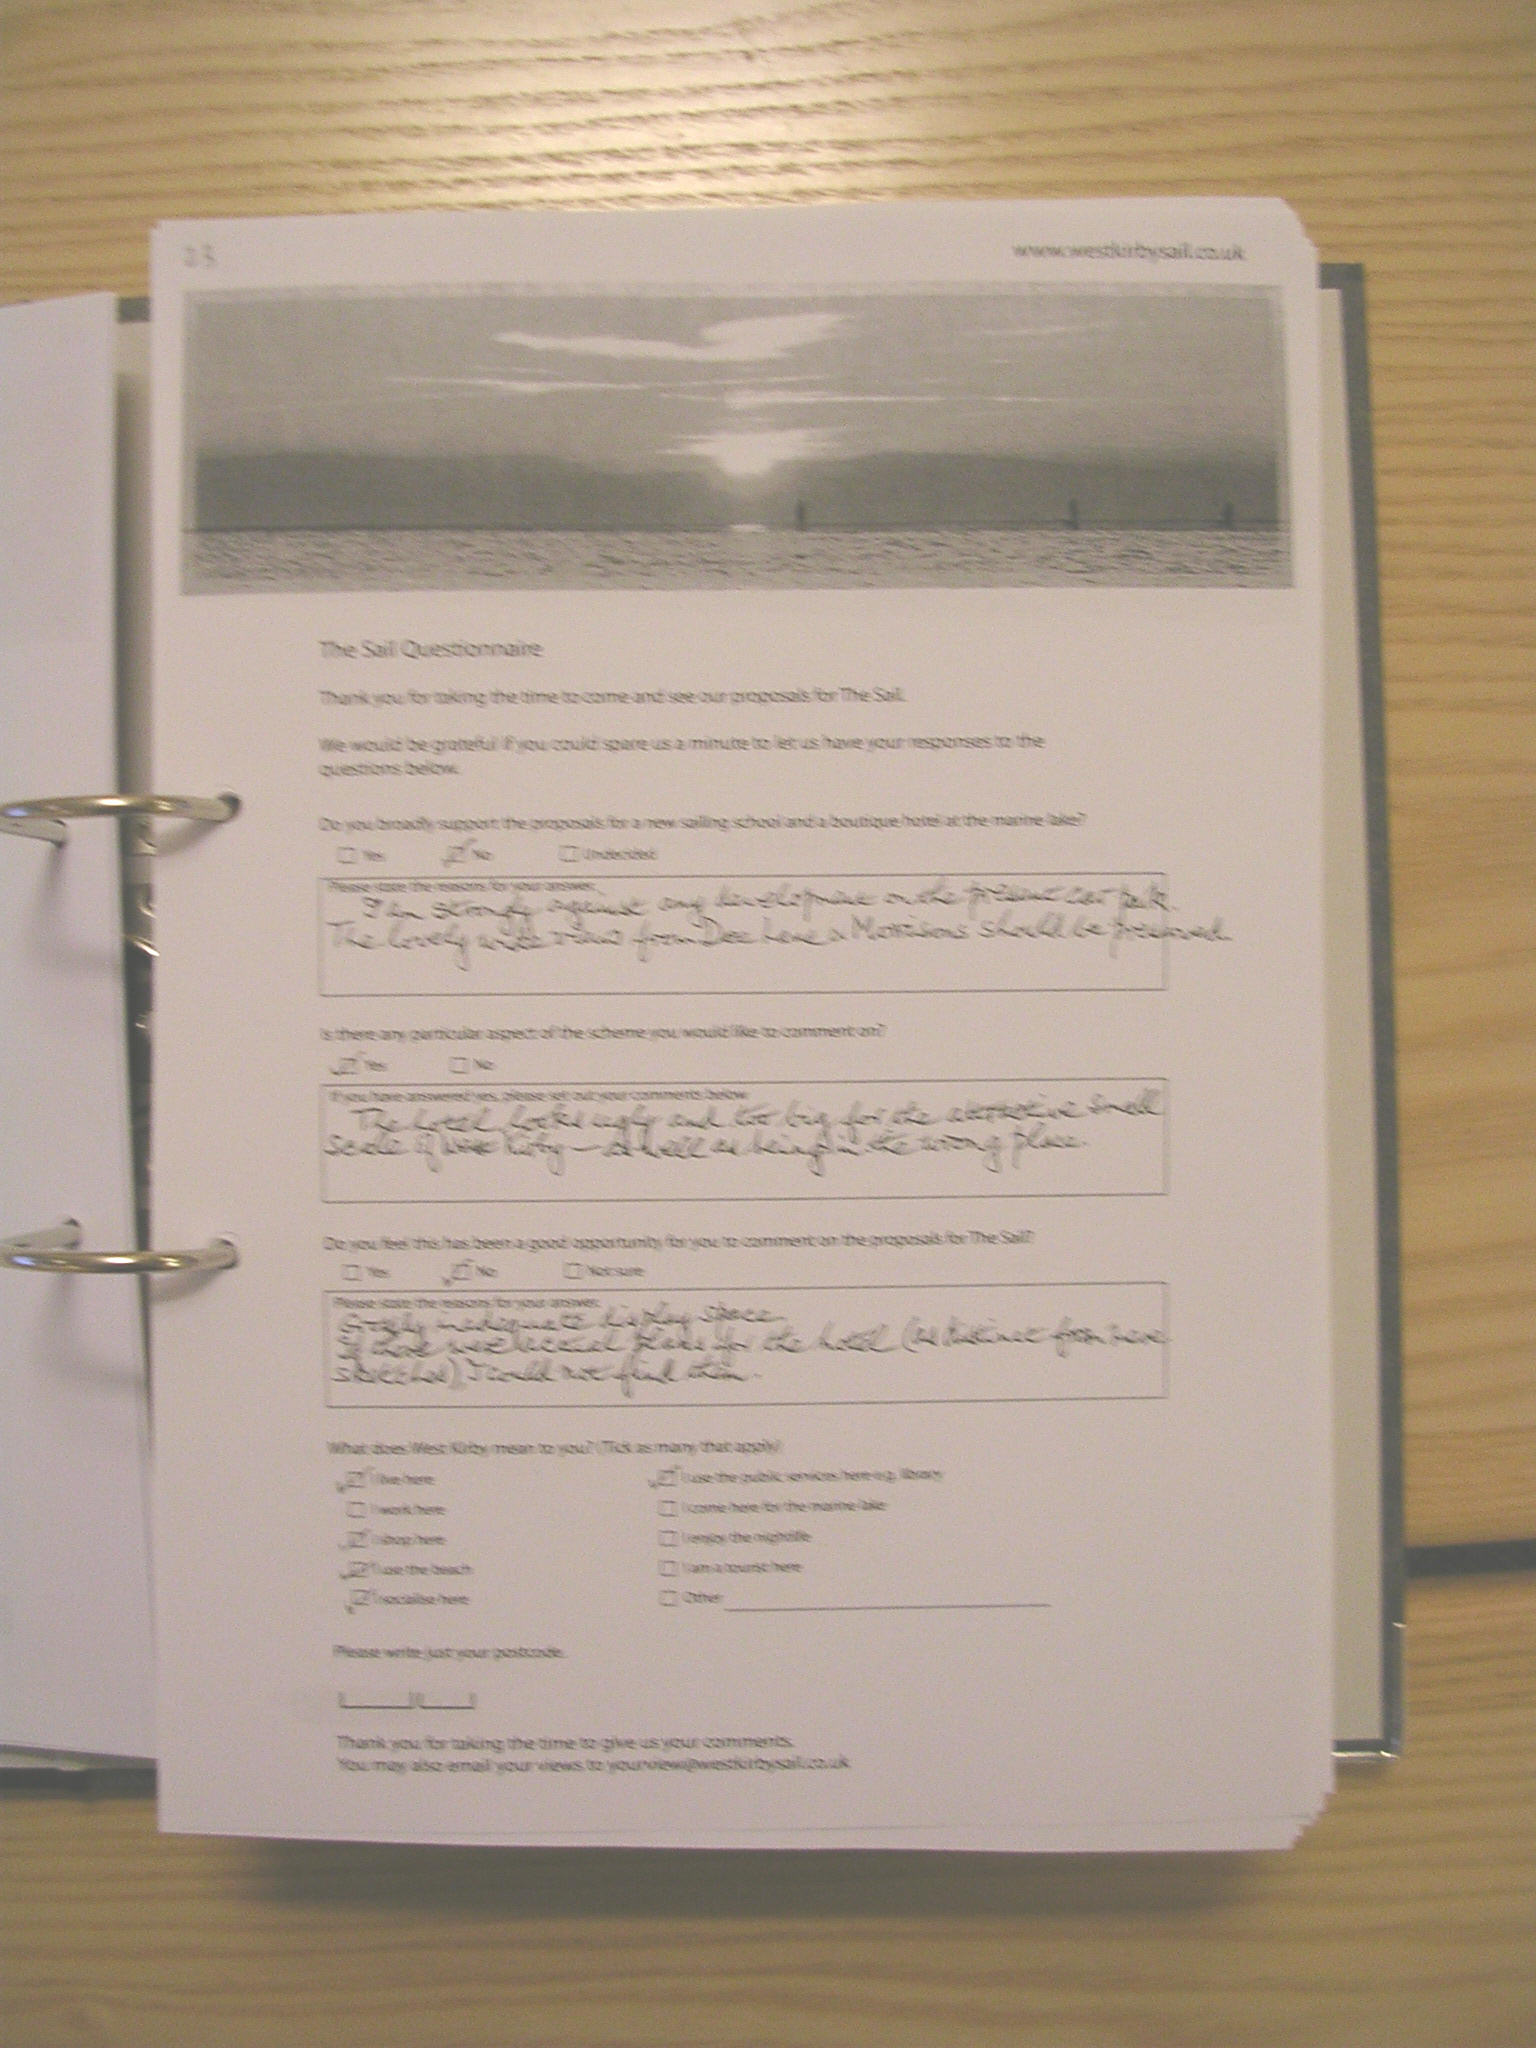 www.westkirbysail.co.uk
The Sail Questionnaire
Thank you for taking the time to come and see our proposals for The Sail.
We would be grateful if you could spare us a minute to let us have your responses to the
questions below.
Do you broadly support the proposals for a new sailing school and a boutique hotel at the marine lake?
Yes No Undecided
Please state the reasons for your answer.
I am strongly against any development on the present car park.
The lovely wide views from Dee Lane & Morrisons should be preserved.
Is there any particular aspect of the scheme you would like to comment on?
Yes No
If you have answered yes, please set out your comments below
The hotel looks ugly and too big for the attractive small
scale of West Kirby — as well as being in the wrong place.
Do you feel this has been a good opportunity for you to comment on the proposals for The Sail?
Yes No Not sure
Please state the reasons for your answer.
Grossly inadequate display space.
If there were actual plans for the hotel (as distinct from mere
sketches), I could not find them.
What does West Kirby mean to you? (Tick as many that apply)
I live here I use the public services here e.g. library
I work here I come here for the marine lake
I shop here I enjoy the nightlife
I use the beach I am a tourist here
I socialise here Other
Please write just your postcode.
Thank you for taking the time to give us your comments.
You may also email your views to yourview@westkirbysail.co.uk